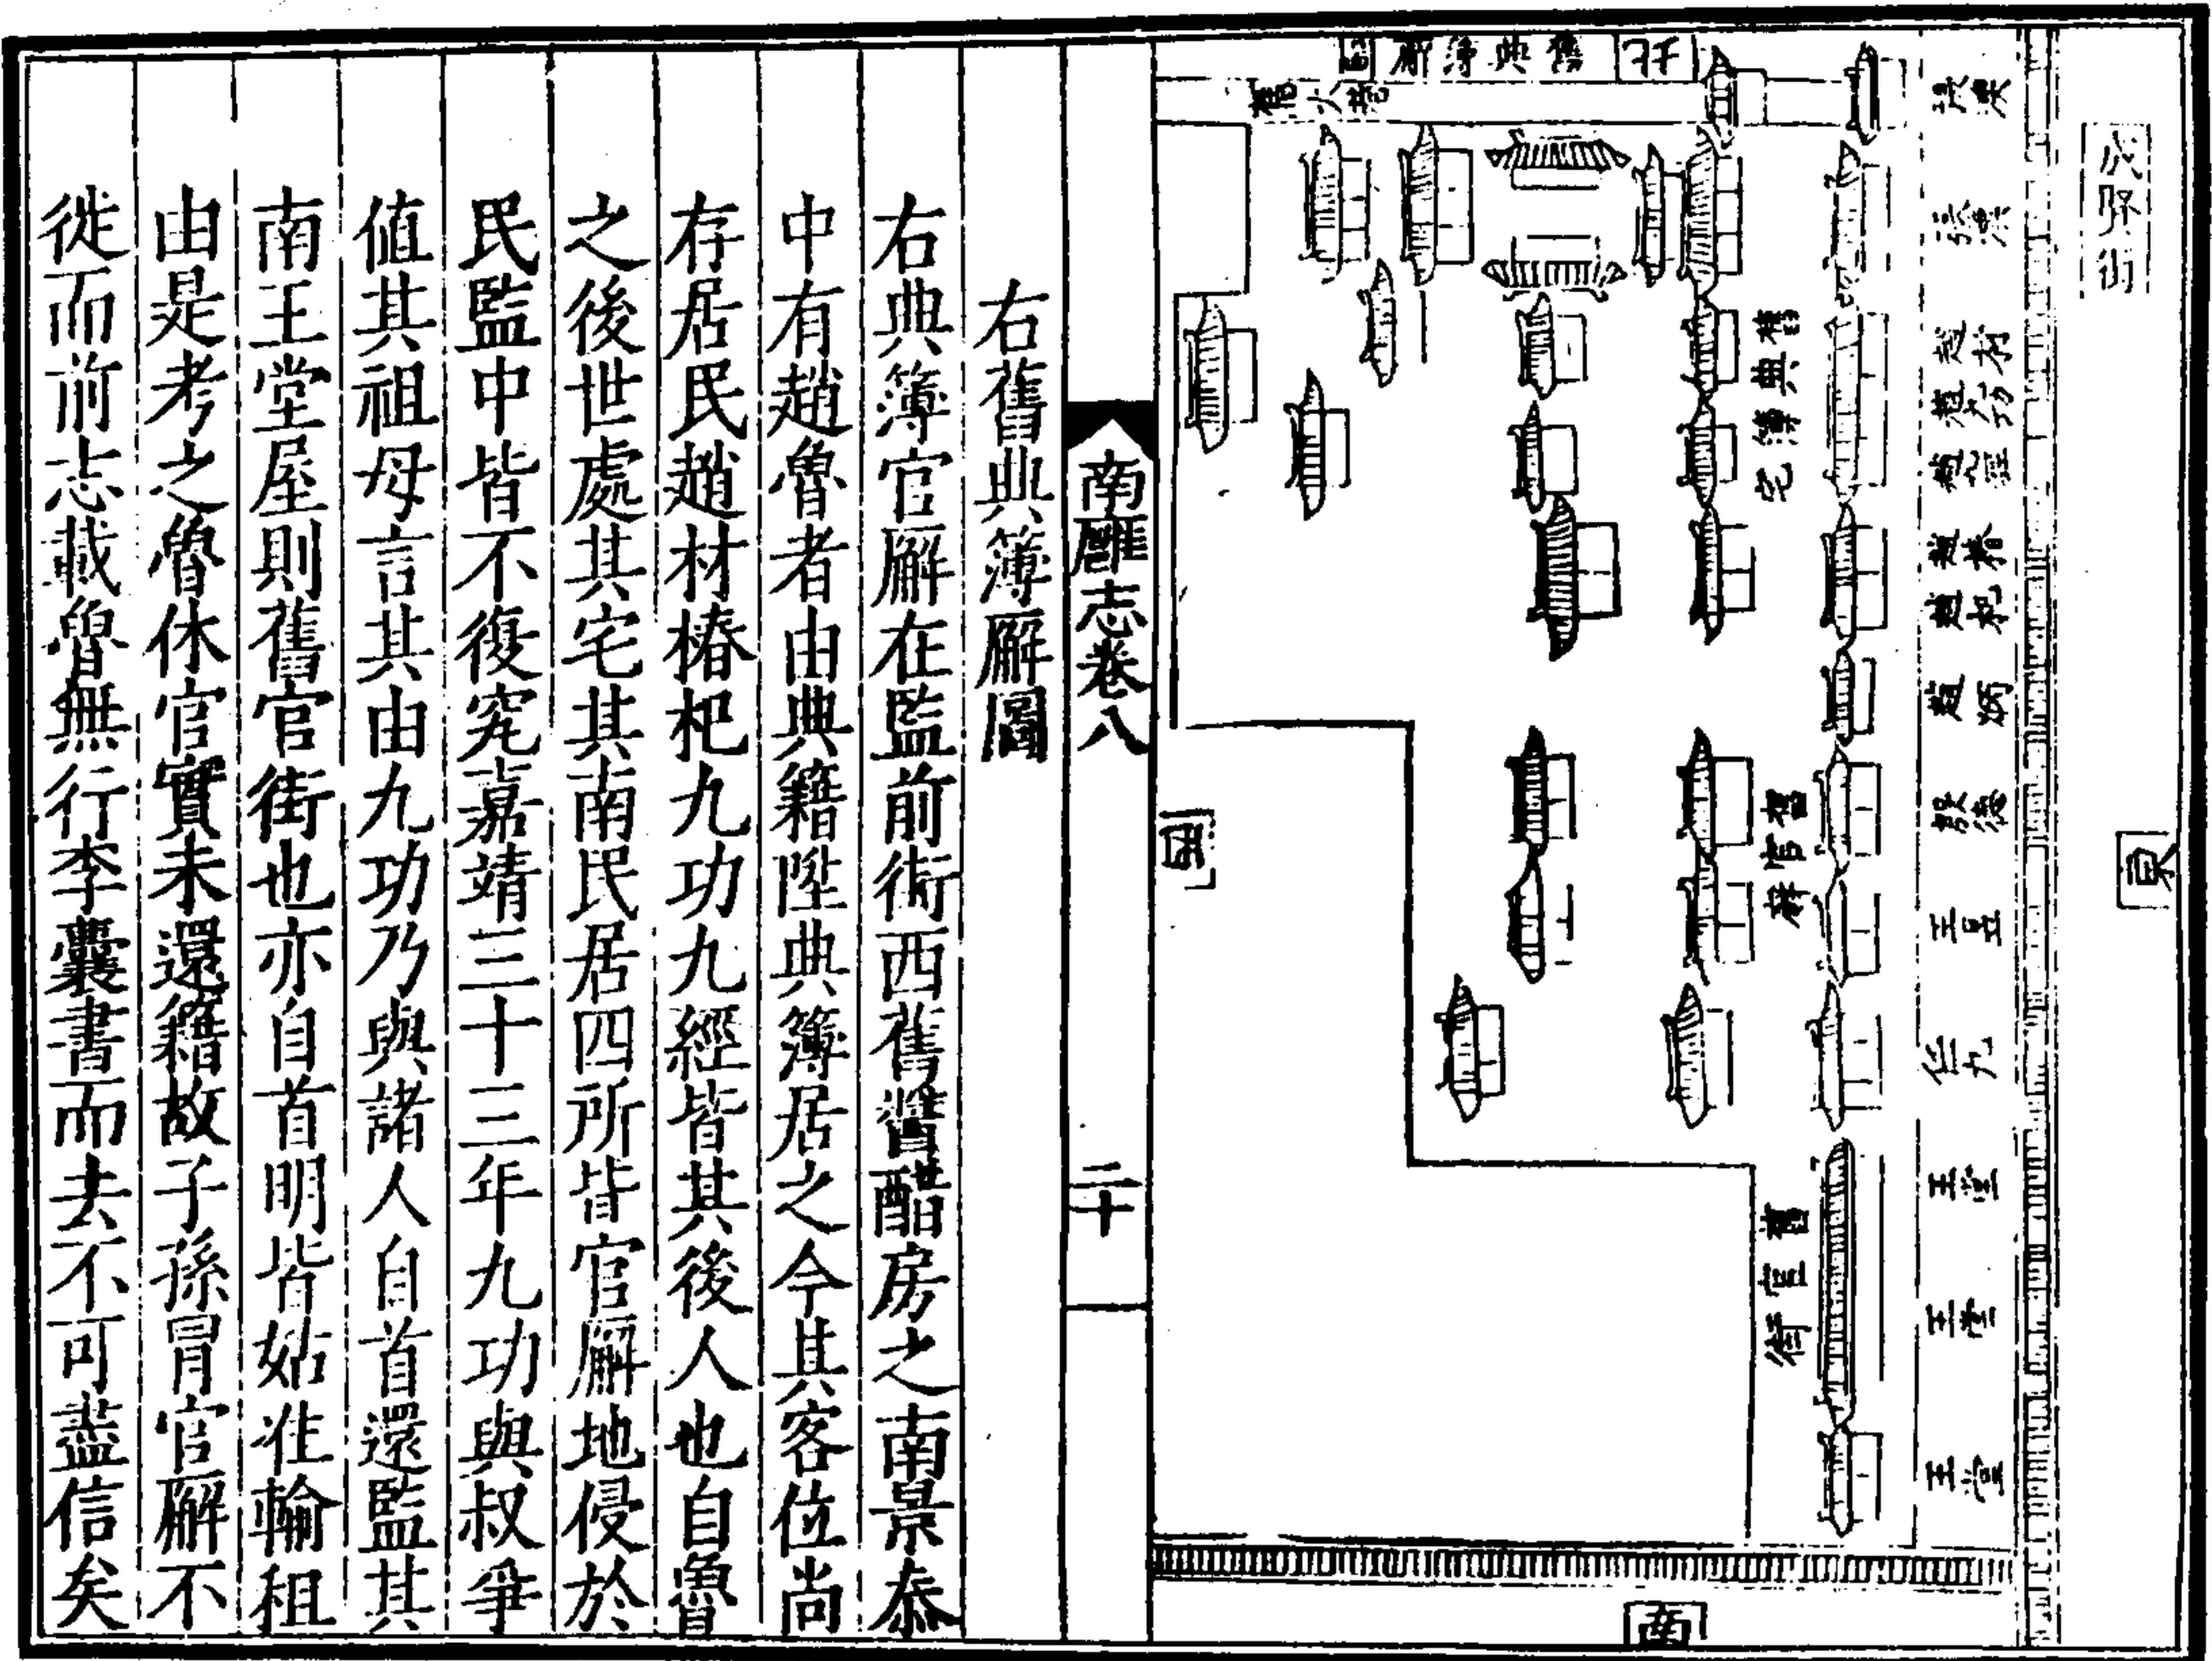 東
張
趙材
趙九功
趙九經
趙椿
趙杞
趙炳
段德
王
九
王堂
王堂
王堂
舊典簿宅
舊官廨
舊官街
北
舊典簿廨圖
西
南
南廱志卷八
二十
右舊典簿廨圖
右典簿官廨在監前街西舊醬醋房之南景泰
中有趙魯者由典籍陞典簿居之今其客位尚
存居民趙材椿杞九功九經皆其後人也自魯
之後世處其宅其南民居四所皆官廨地侵於
民監中皆不復究嘉靖三十三年九功與叔爭
值其祖母言其由九功乃與諸人自首還監其
南王堂屋則舊官街也亦自首明皆姑准輸租
由是考之魯休官實未還籍故子孫冒官廨不
徙而前志載魯無行李囊書而去不可盡信矣